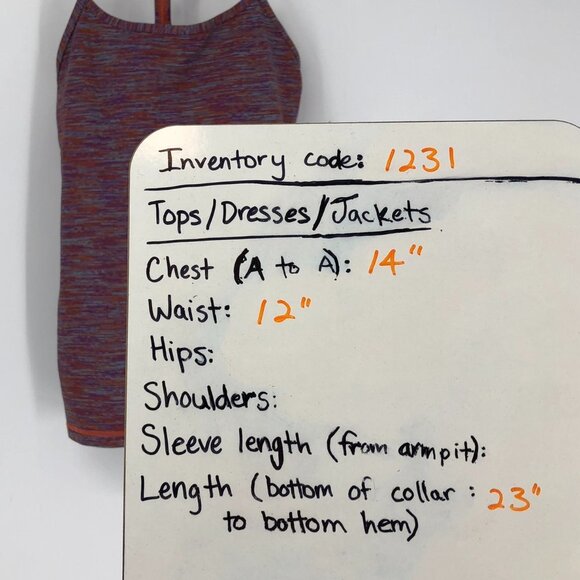 Inventory code: 1231
Tops/Dresses/Jackets
Chest (A to A): 14"
Waist: 12"
Hips:
Shoulders:
Sleeve length (from armpit):
Length (bottom of collar : 23"
to bottom hem)